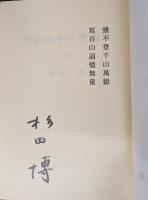 雖不登千山萬嶽
寫百山追憶無量
杉田博